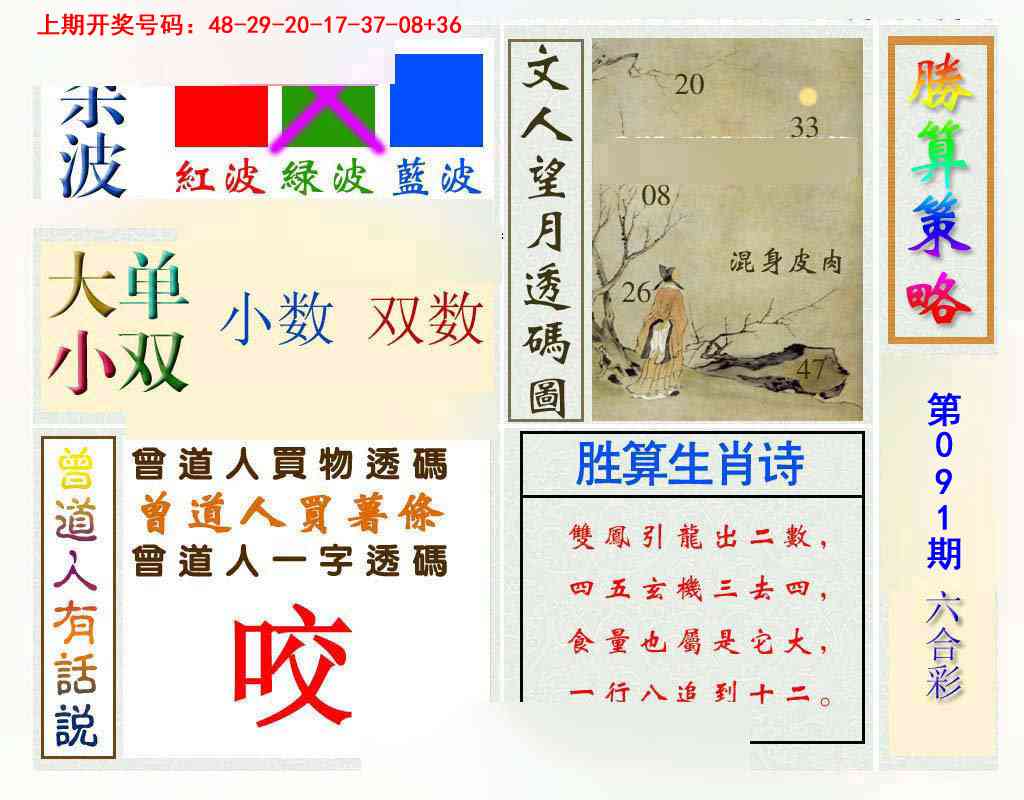 上期开奖号码：48-29-20-17-37-08+36
波
紅波 緑波 藍波
大单
小双
小数 双数
文人望月透碼圖
20
33
08
混身皮肉
26
47
勝算策略
第091期
六合彩
曾道人有話説
曾道人買物透碼
曾道人買薯條
曾道人一字透碼
咬
胜算生肖诗
雙鳳引龍出二數，
四五玄機三去四，
食量也屬是它大，
一行八追到十二。